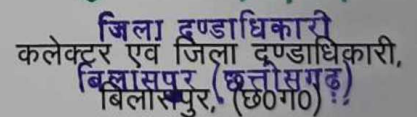 जिला दण्डाधिकारी
कलेक्टर एवं जिला दण्डाधिकारी,
बिलासपुर (छत्तीसगढ़)
बिलासपुर, (छ0ग0)